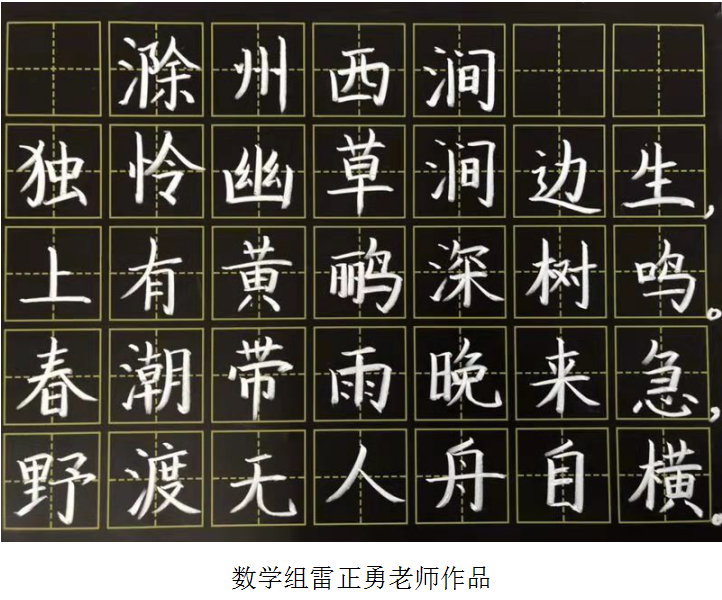 滁州西涧
独怜幽草涧边生，
上有黄鹂深树鸣。
春潮带雨晚来急，
野渡无人舟自横。
数学组雷正勇老师作品